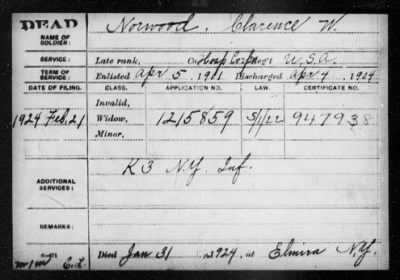 DEAD
NAME OF SOLDIER: Norwood, Clarence W.
SERVICE: Late rank, Co. Hosp Corps Reg't U.S.A.
TERM OF SERVICE: Enlisted Apr 5, 1901 Discharged Apr 4, 1904
DATE OF FILING. CLASS. APPLICATION NO. LAW. CERTIFICATE NO.
Invalid,
1924 Feb. 21 Widow, 1215859 5/1/22 947938
Minor,
ADDITIONAL SERVICES: K 3 N.Y. Inf.
REMARKS:
Died Jan 31, 1924, at Elmira N.Y.